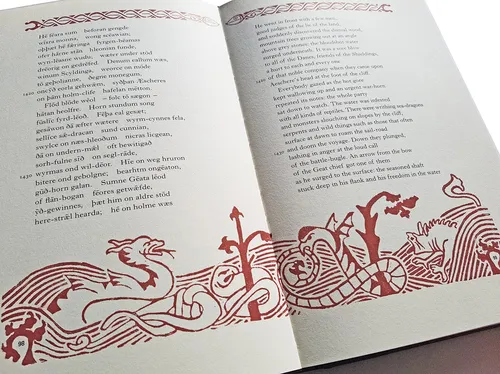 Hē fēara sum beforan gengde
wīsra monna, wong scēawian,
oþþæt hē fǣringa fyrgen-bēamas
ofer hārne stān hleonian funde,
wyn-lēasne wudu; wæter under stōd
drēorig ond gedrēfed. Denum eallum wæs,
winum Scyldinga, weorce on mōde
tō geþolianne, ðegne monegum,
1420 oncȳð eorla gehwǣm, syðþan Æscheres
on þām holm-clife hafelan mētton.
Flōd blōde wēol – folc tō sǣgon –
hātan heolfre. Horn stundum song
fūslic fyrd-lēoð. Fēþa eal gesæt;
gesāwon ðā æfter wætere wyrm-cynnes fela,
sellice sǣ-dracan sund cunnian,
swylce on næs-hleoðum nicras licgean,
ðā on undern-mǣl oft bewitigað
sorh-fulne sīð on segl-rāde,
1430 wyrmas ond wil-dēor. Hīe on weg hruron
bitere ond gebolgne; bearhtm ongēaton,
gūð-horn galan. Sumne Gēata lēod
of flān-bogan fēores getwǣfde,
ȳð-gewinnes, þæt him on aldre stōd
here-strǣl hearda; hē on holme wæs
98
He went in front with a few men,
good judges of the lie of the land,
and suddenly discovered the dismal wood,
mountain trees growing out at an angle
above grey stones: the bloodshot water
surged underneath. It was a sore blow
to all of the Danes, friends of the Shieldings,
a hurt to each and every one
1420 of that noble company when they came upon
Aeschere's head at the foot of the cliff.
Everybody gazed as the hot gore
kept wallowing up and an urgent war-horn
repeated its notes: the whole party
sat down to watch. The water was infested
with all kinds of reptiles. There were writhing sea-dragons
and monsters slouching on slopes by the cliff,
serpents and wild things such as those that often
surface at dawn to roam the sail-road
1430 and doom the voyage. Down they plunged,
lashing in anger at the loud call
of the battle-bugle. An arrow from the bow
of the Geat chief got one of them
as he surged to the surface: the seasoned shaft
stuck deep in his flank and his freedom in the water